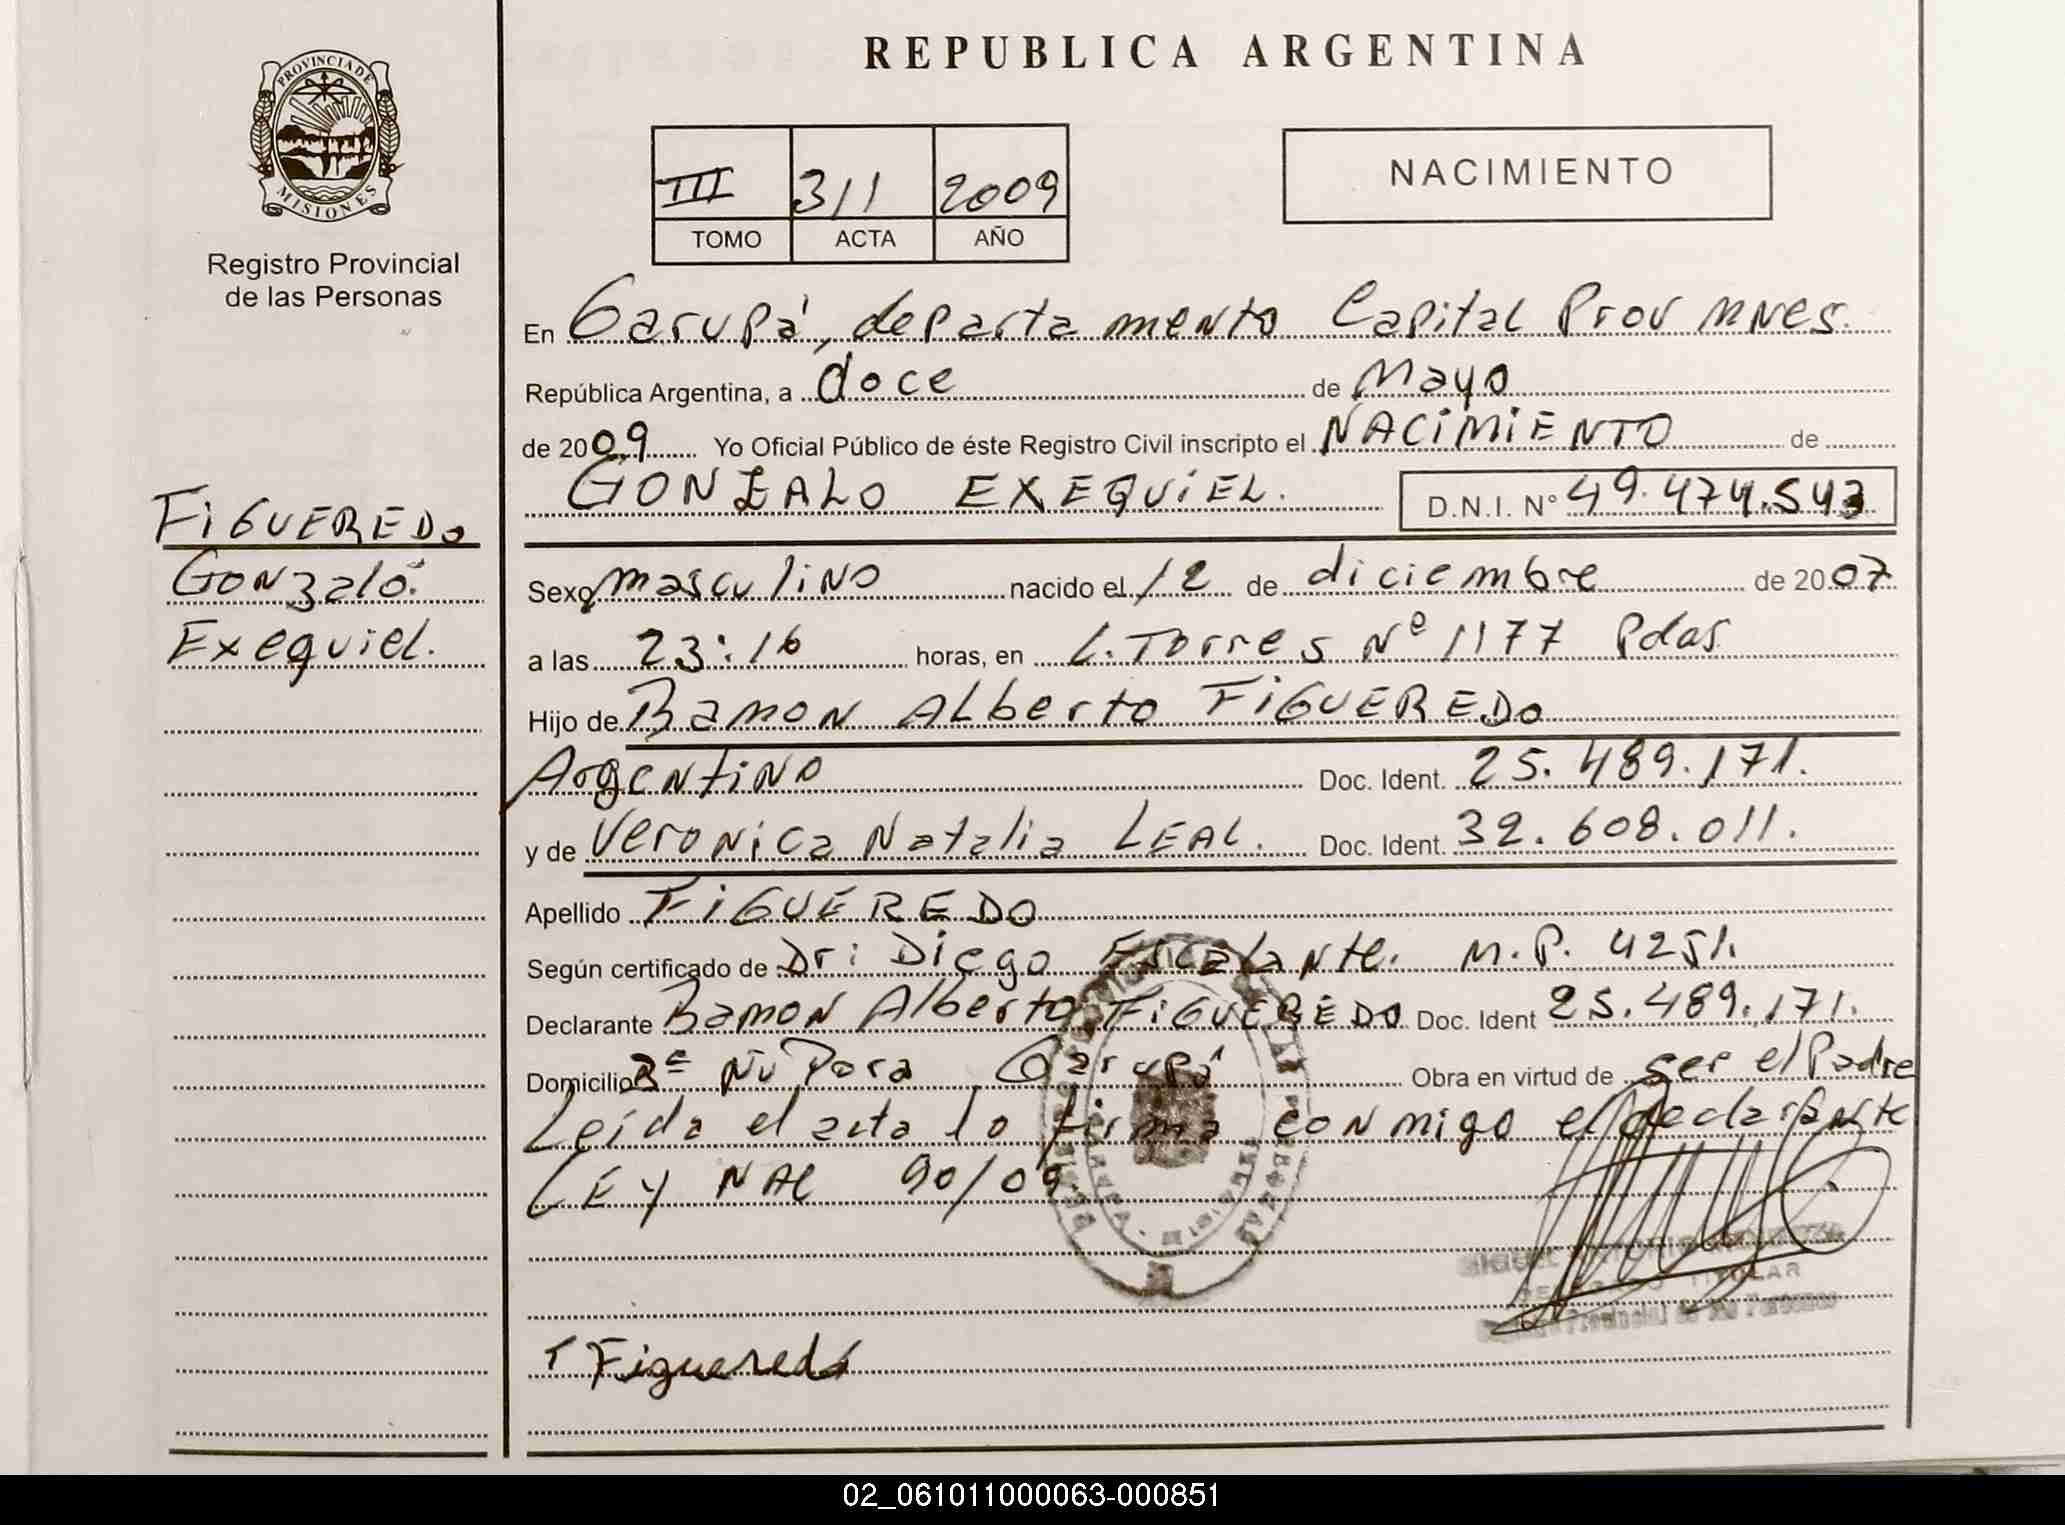 PROVINCIA DE
MISIONES
Registro Provincial
de las Personas
FIGUEREDO
Gonzalo
Exequiel.
REPUBLICA ARGENTINA
III 311 2009
TOMO ACTA AÑO
NACIMIENTO
En Garupá, departamento Capital Prov Mnes.
República Argentina, a doce de Mayo
de 2009 Yo Oficial Público de éste Registro Civil inscripto el NACIMIENTO de
GONZALO EXEQUIEL. D.N.I. N° 49.474.543
Sexo masculino nacido el 12 de diciembre de 2007
a las 23:16 horas, en L. Torres Nº 1177 Pdas
Hijo de Ramon Alberto FIGUEREDO
Argentino Doc. Ident. 25.489.171.
y de Veronica Natalia LEAL. Doc. Ident. 32.608.011.
Apellido FIGUEREDO
Según certificado de Dr: Diego Escalante. M.P. 4251.
Declarante Ramon Alberto FIGUEREDO Doc. Ident 25.489.171.
Domicilio Bº Ñu Pora Garupá Obra en virtud de ser el Padre
Leída el acta lo firma conmigo el declarante
LEY NAC 90/09.
TITULAR
Provincial de las Personas
Figueredo
02_061011000063-000851